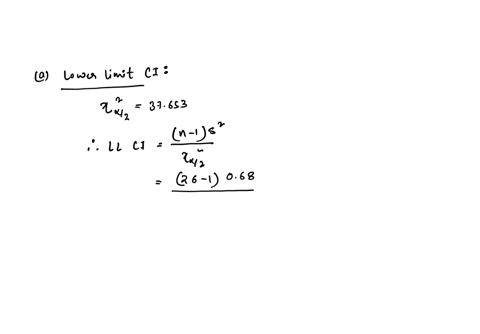 (a) Lower limit CI:
χ²α/2 = 37.653
∴ LL CI = (n-1)s² / χ²α/2
= (26-1) 0.68